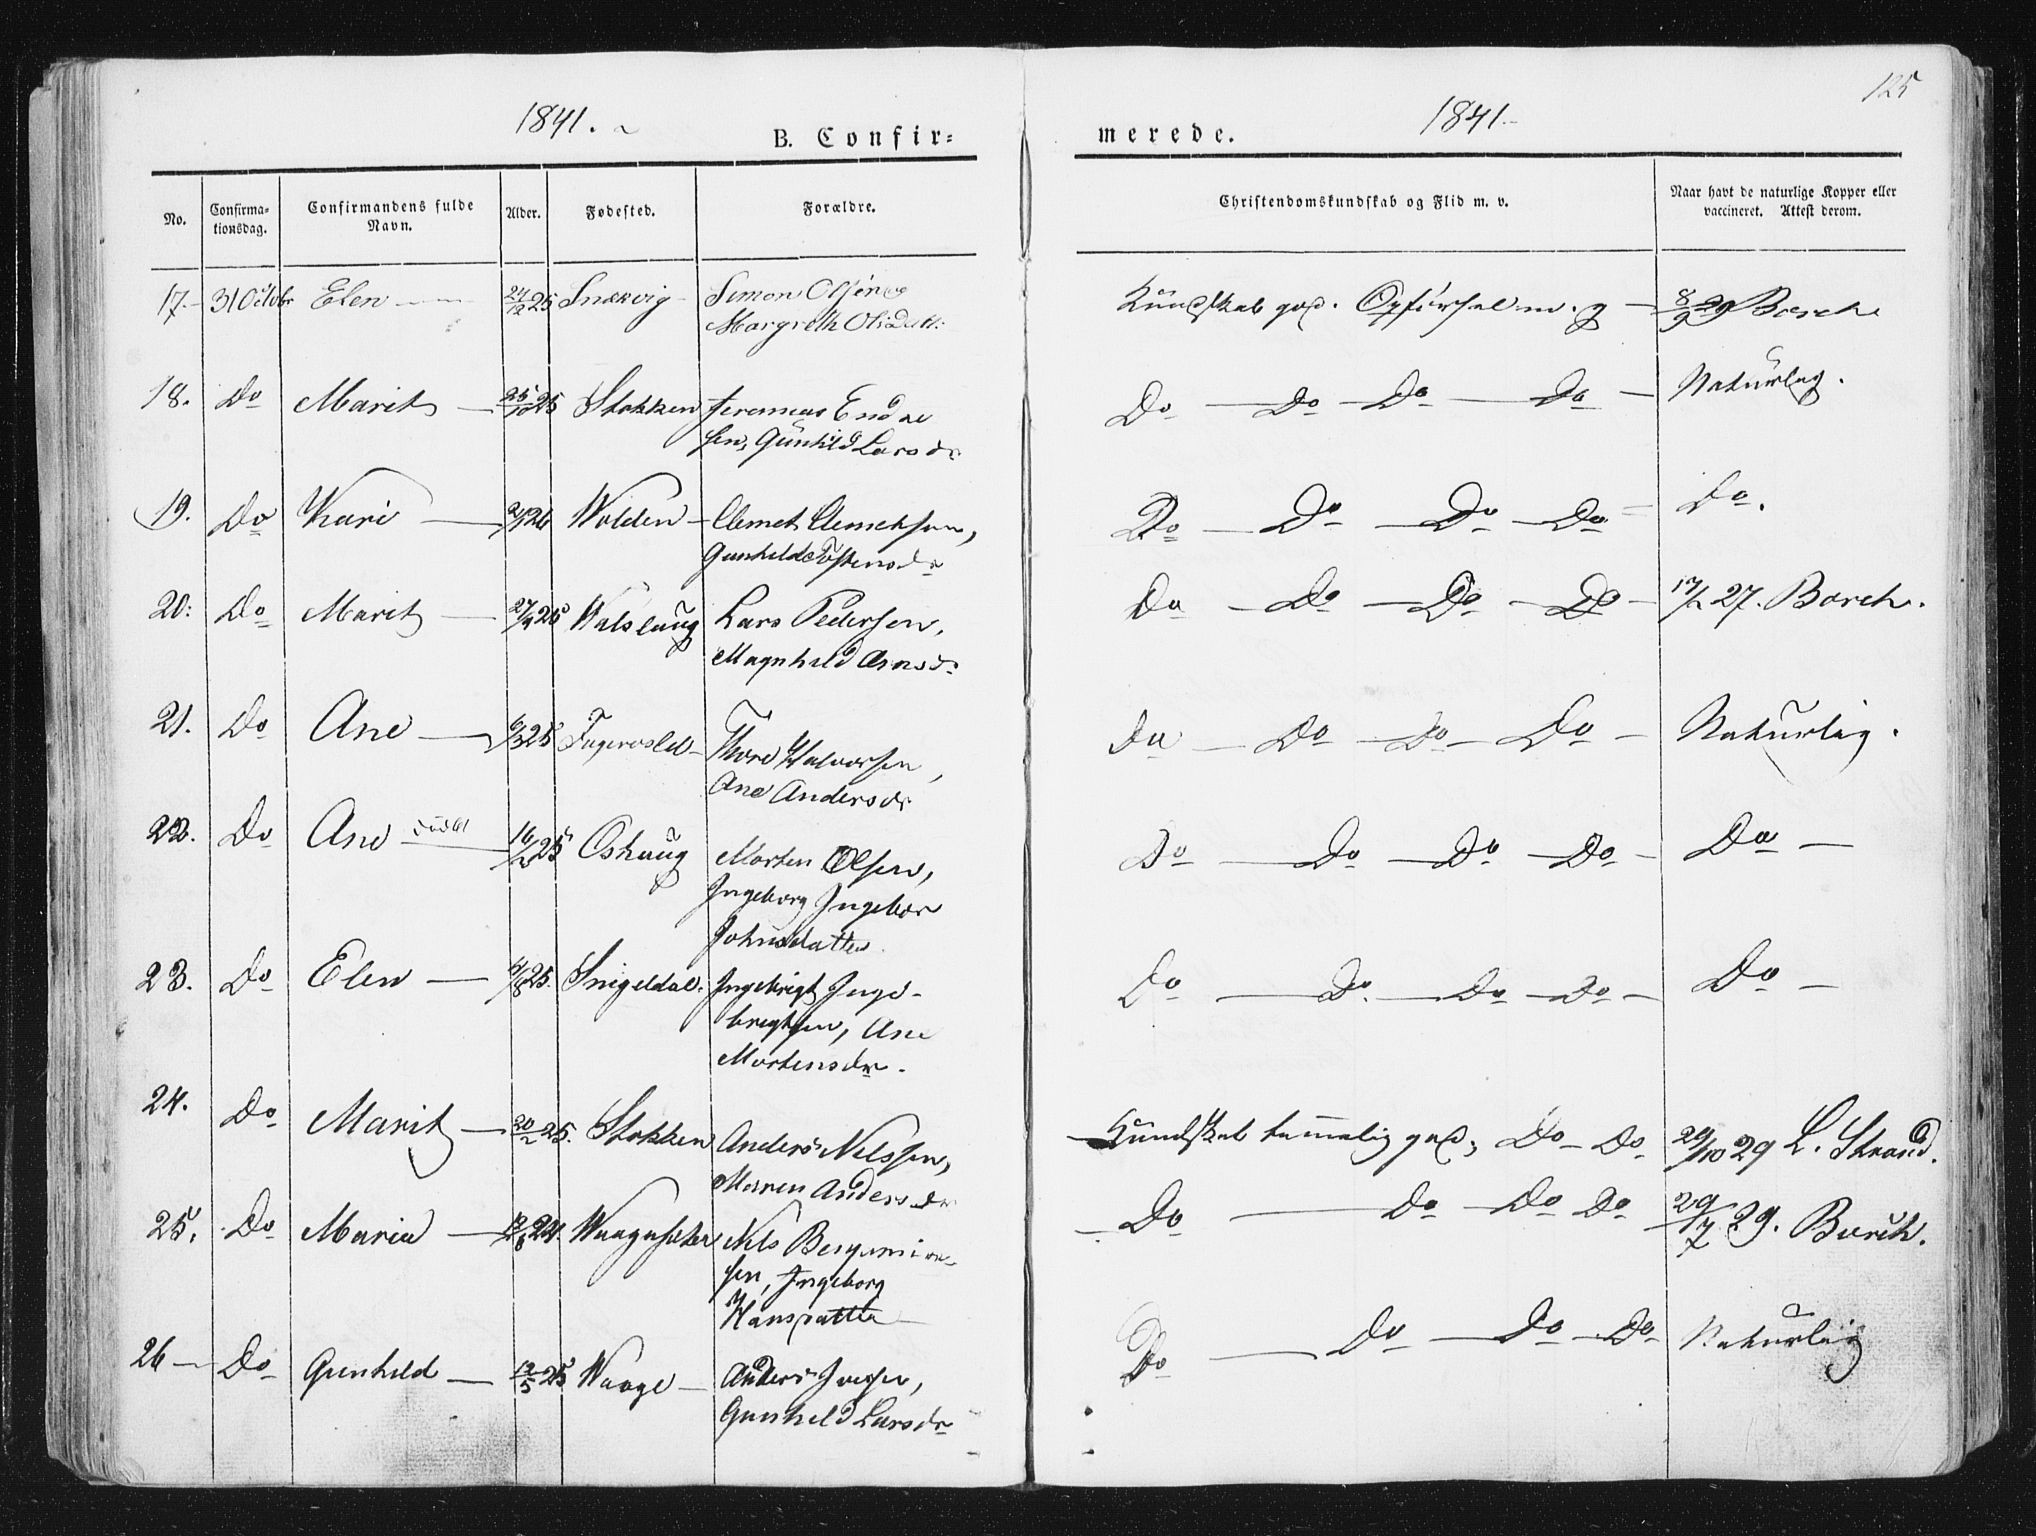 125
1841.
1841.
B. Confir=
merede.
No.
Confirma=
tionsdag.
Confirmandens fulde
Navn.
Alder.
Fødested.
Forældre.
Christendomskundskab og Flid m. v.
Naar havt de naturlige Kopper eller
vaccineret. Attest derom.
17. 31 Octobr Elen 24/12 25 Snekvig Simon Olsen
Margreth Olsdatt:
Kundskab god. Opførsel m. g 8/9 29 Borch
18. Do Marit 25/10 25 Stokken Jeremias Endre
sen, Gunhild Larsdr
Do Do Do Do Naturlig.
19. Do Kari 26 Wolden Clemet Clemetsen,
Gunhild Tostensdr
Do Do Do Do Do.
20: Do Marit 25 Walslaug Lars Pedersen,
Magnhild Arnsdr
Do Do Do Do 27. Borch.
21. Do Ane 6/3 25 Fagervold Thore Halvorsen,
Ane Andersdr
Do Do Do Do Naturlig.
22. Do Ane 25 Oshaug Morten Olsen,
Ingeborg Ingebor
Johnsdatter
Do Do Do Do Do
23. Do Elen 25. Snigeldal. Ingebrigt Inge-
brigtsen, Ane
Mortensdr.
Do Do. Do Do Do
24. Do Marit 20/2 25. Stokken Anders Nilssen,
Maren Andersdr
Kundskab temmelig god, Do Do 29/10 29 L. Strand.
25. Do Maria 24. Nils Benjamin
sen, Ingeborg
Hansdatter
Do Do Do Do 29/7 29. Borch.
26 Do Gunhild 12/5 25 Waage Anders Iversen,
Gunhild Larsdr
Do Do Do Do Naturlig